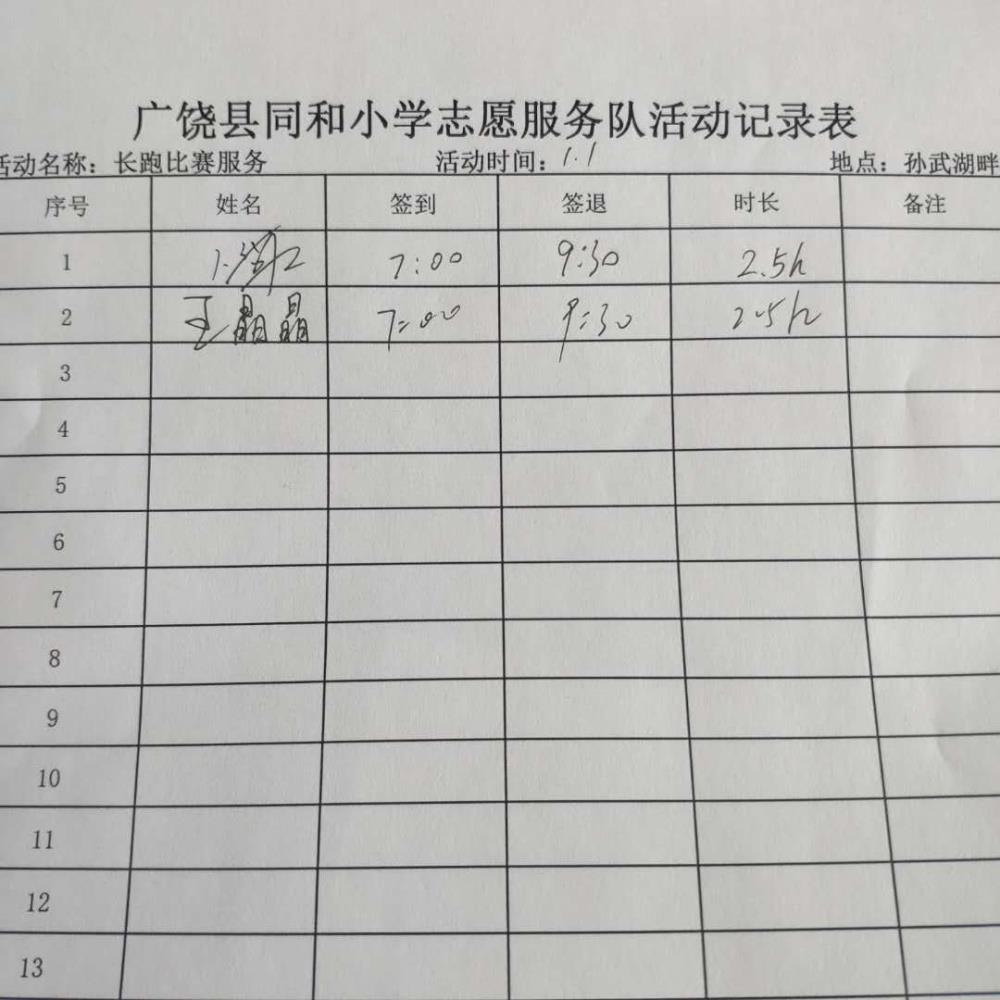 广饶县同和小学志愿服务队活动记录表
活动名称：长跑比赛服务 活动时间：1.1 地点：孙武湖畔
序号 姓名 签到 签退 时长 备注
1 7:00 9:30 2.5h
2 王晶晶 7:00 9:30 2.5h
3
4
5
6
7
8
9
10
11
12
13